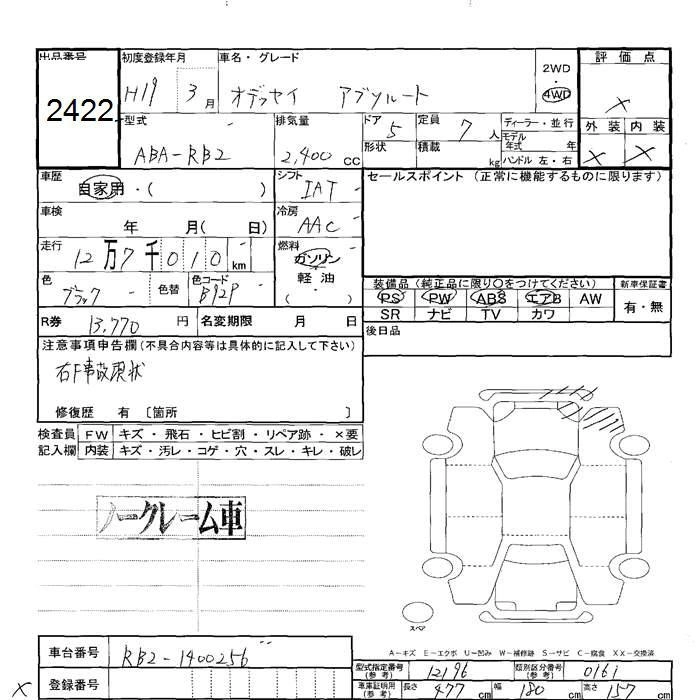 出品番号
2422
初度登録年月
H19 3月
車名・グレード
オデッセイ アブソルート
2WD
・
4WD
評価点
×
外装 内装
× ×
型式
ABA-RB2
排気量
2,400 cc
ドア 5
形状
定員 7 人
積載 kg
ディーラー・並行
モデル年式 年
ハンドル 左・右
車歴
自家用・( )
シフト
IAT
セールスポイント (正常に機能するものに限ります)
車検
年 月( 日)
冷房
AAC
走行
12万7千010km
燃料
ガソリン
軽油
( ・ )
色
ブラック
色替
色コード
B92P
装備品 (純正品に限り○をつけてください)
PS PW ABS エアB AW
SR ナビ TV カワ
新車保証書
有・無
R券 13,770 円
名変期限 月 日
後日品
注意事項申告欄(不具合内容等は具体的に記入して下さい)
右F事故現状
修復歴 有 〔箇所 〕
検査員
記入欄
FW キズ・飛石・ヒビ割・リペア跡・×要
内装 キズ・汚レ・コゲ・穴・スレ・キレ・破レ
ノークレーム車
スペア
A-キズ E-エクボ U-凹み W-補修跡 S-サビ C-腐食 XX-交換済
車台番号 RB2-1400256
登録番号
×
型式指定番号
(参考)
12196
類別区分番号
(参考)
0161
車庫証明用
(参考)
長さ 477 cm
幅 180 cm
高さ 157 cm